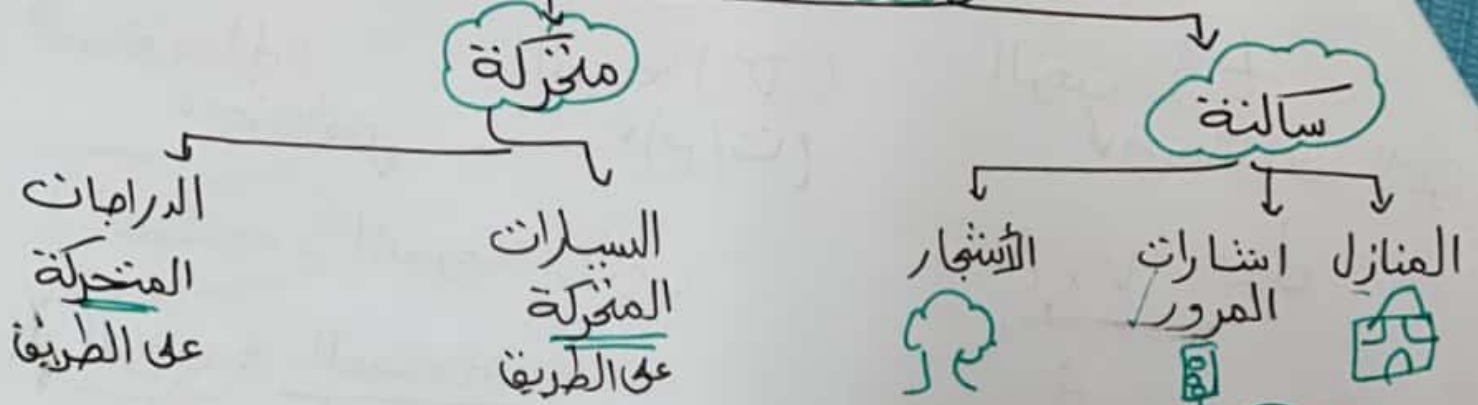 ساكنة
متحركة
المنازل
اشارات
المرور
الأشجار
السيارات
المتحركة
على الطريق
الدراجات
المتحركة
على الطريق